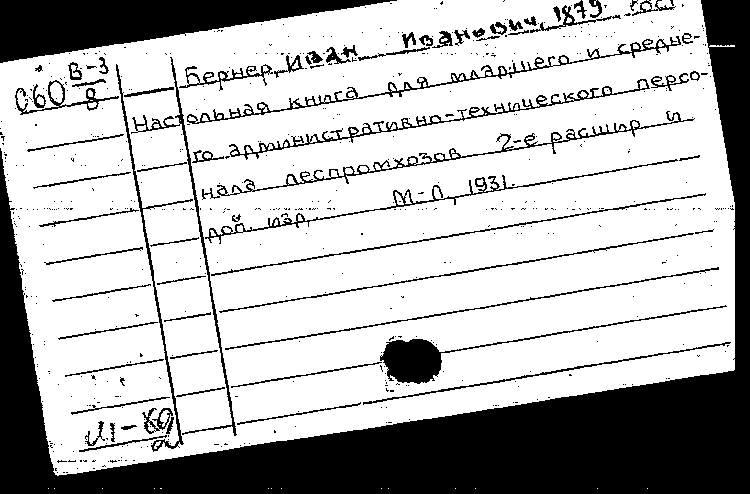 С60 В-3/8
Бернер, Иван Иванович, 1879 сост.
Настольная книга для младшего и средне-
го административно-технического персо-
нала леспромхозов 2-е расшир и
доп. изд. М-Л, 1931.